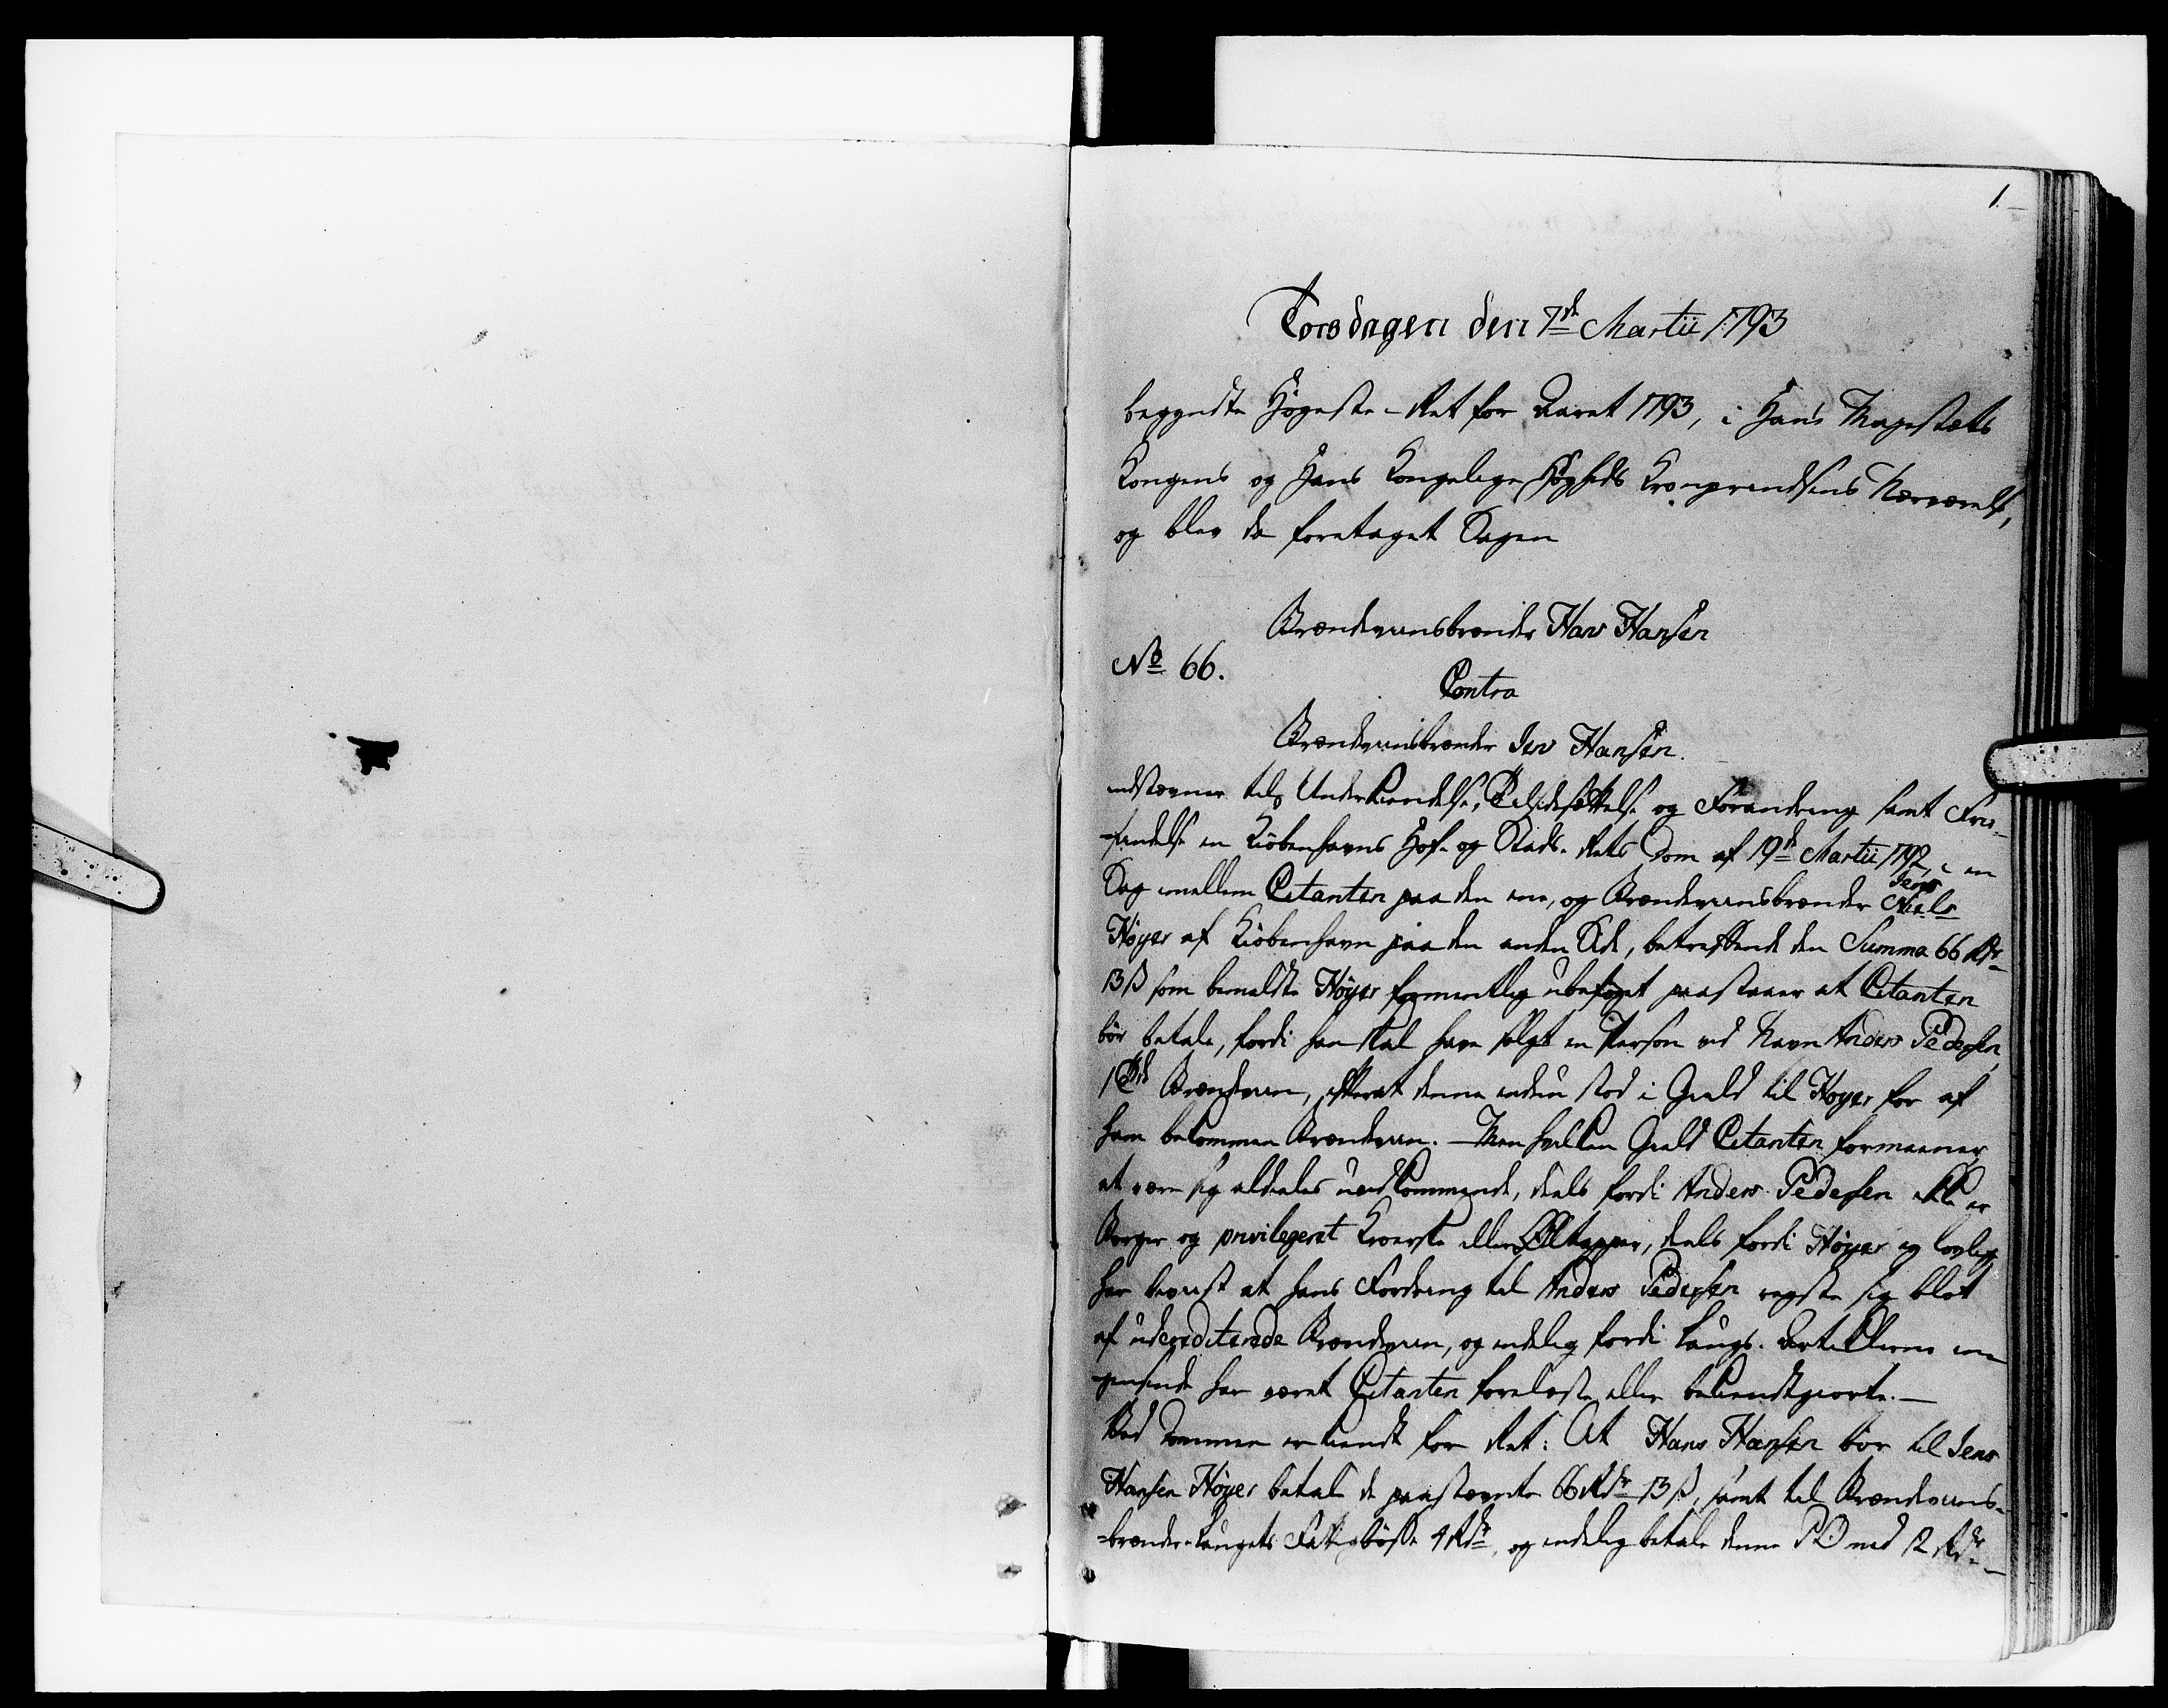 1.
Torsdagen den 7de Martii 1793
begyndte Høyeste-Ret for Aaret 1793, i Hans Majestæts
Kongens og Hans Kongelige Høyheds Kronprindsens Nærværelse,
og blev da foretaget Sagen
Brændeviinsbrænder Hans Hansen
No 66.
Contra
Brændeviinsbrænder Jens Hansen.
indstævner til Underkiendelse, Tilsidesættelse og Forandring samt Frie-
-findelse en Kiøbenhavns Hof- og Stads-Rets Dom af 19de Martii 1792, i en
Sag imellem Citanten paa den ene, og Brændeviinsbrænder Niels
Jens
Høyer af Kiøbenhavn paa den anden Side, betreffende den Summa 66 Rdr
13 ß som bemeldte Høyer formentlig ubeføyet paastaaer at Citanten
bør betale, fordi han skal have solgt en Person ved Navn Anders Pedersen
1 Brændeviin, efterat denne endnu stod i Gield til Høyer for af
ham bekommen Brændeviin. — Men hvilken Gield Citanten formeener
at være sig aldeeles uvedkommende, deels fordi Anders Pedersen ikke er
Borger og privilegeret Kroerske eller Øltapper, deels fordi Høyer ey lovlig
har beviist at hans Fordring til Anders Pedersen reyste sig blot
af udcrediterede Brændeviin, og endelig fordi Laugs-Artiklerne in-
-gensinde har været Citanten forelæste eller bekiendtgiorte. —
Ved Dommen er kiendt for Ret: At Hans Hansen bør til Jens
Hansen Høyer betale de paastævnte 66 Rdr 13 ß, samt til Brændeviins-
-brænder-Laugets Fattigbøsse 4 Rdr, og endelig betale denne med 12 Rdr